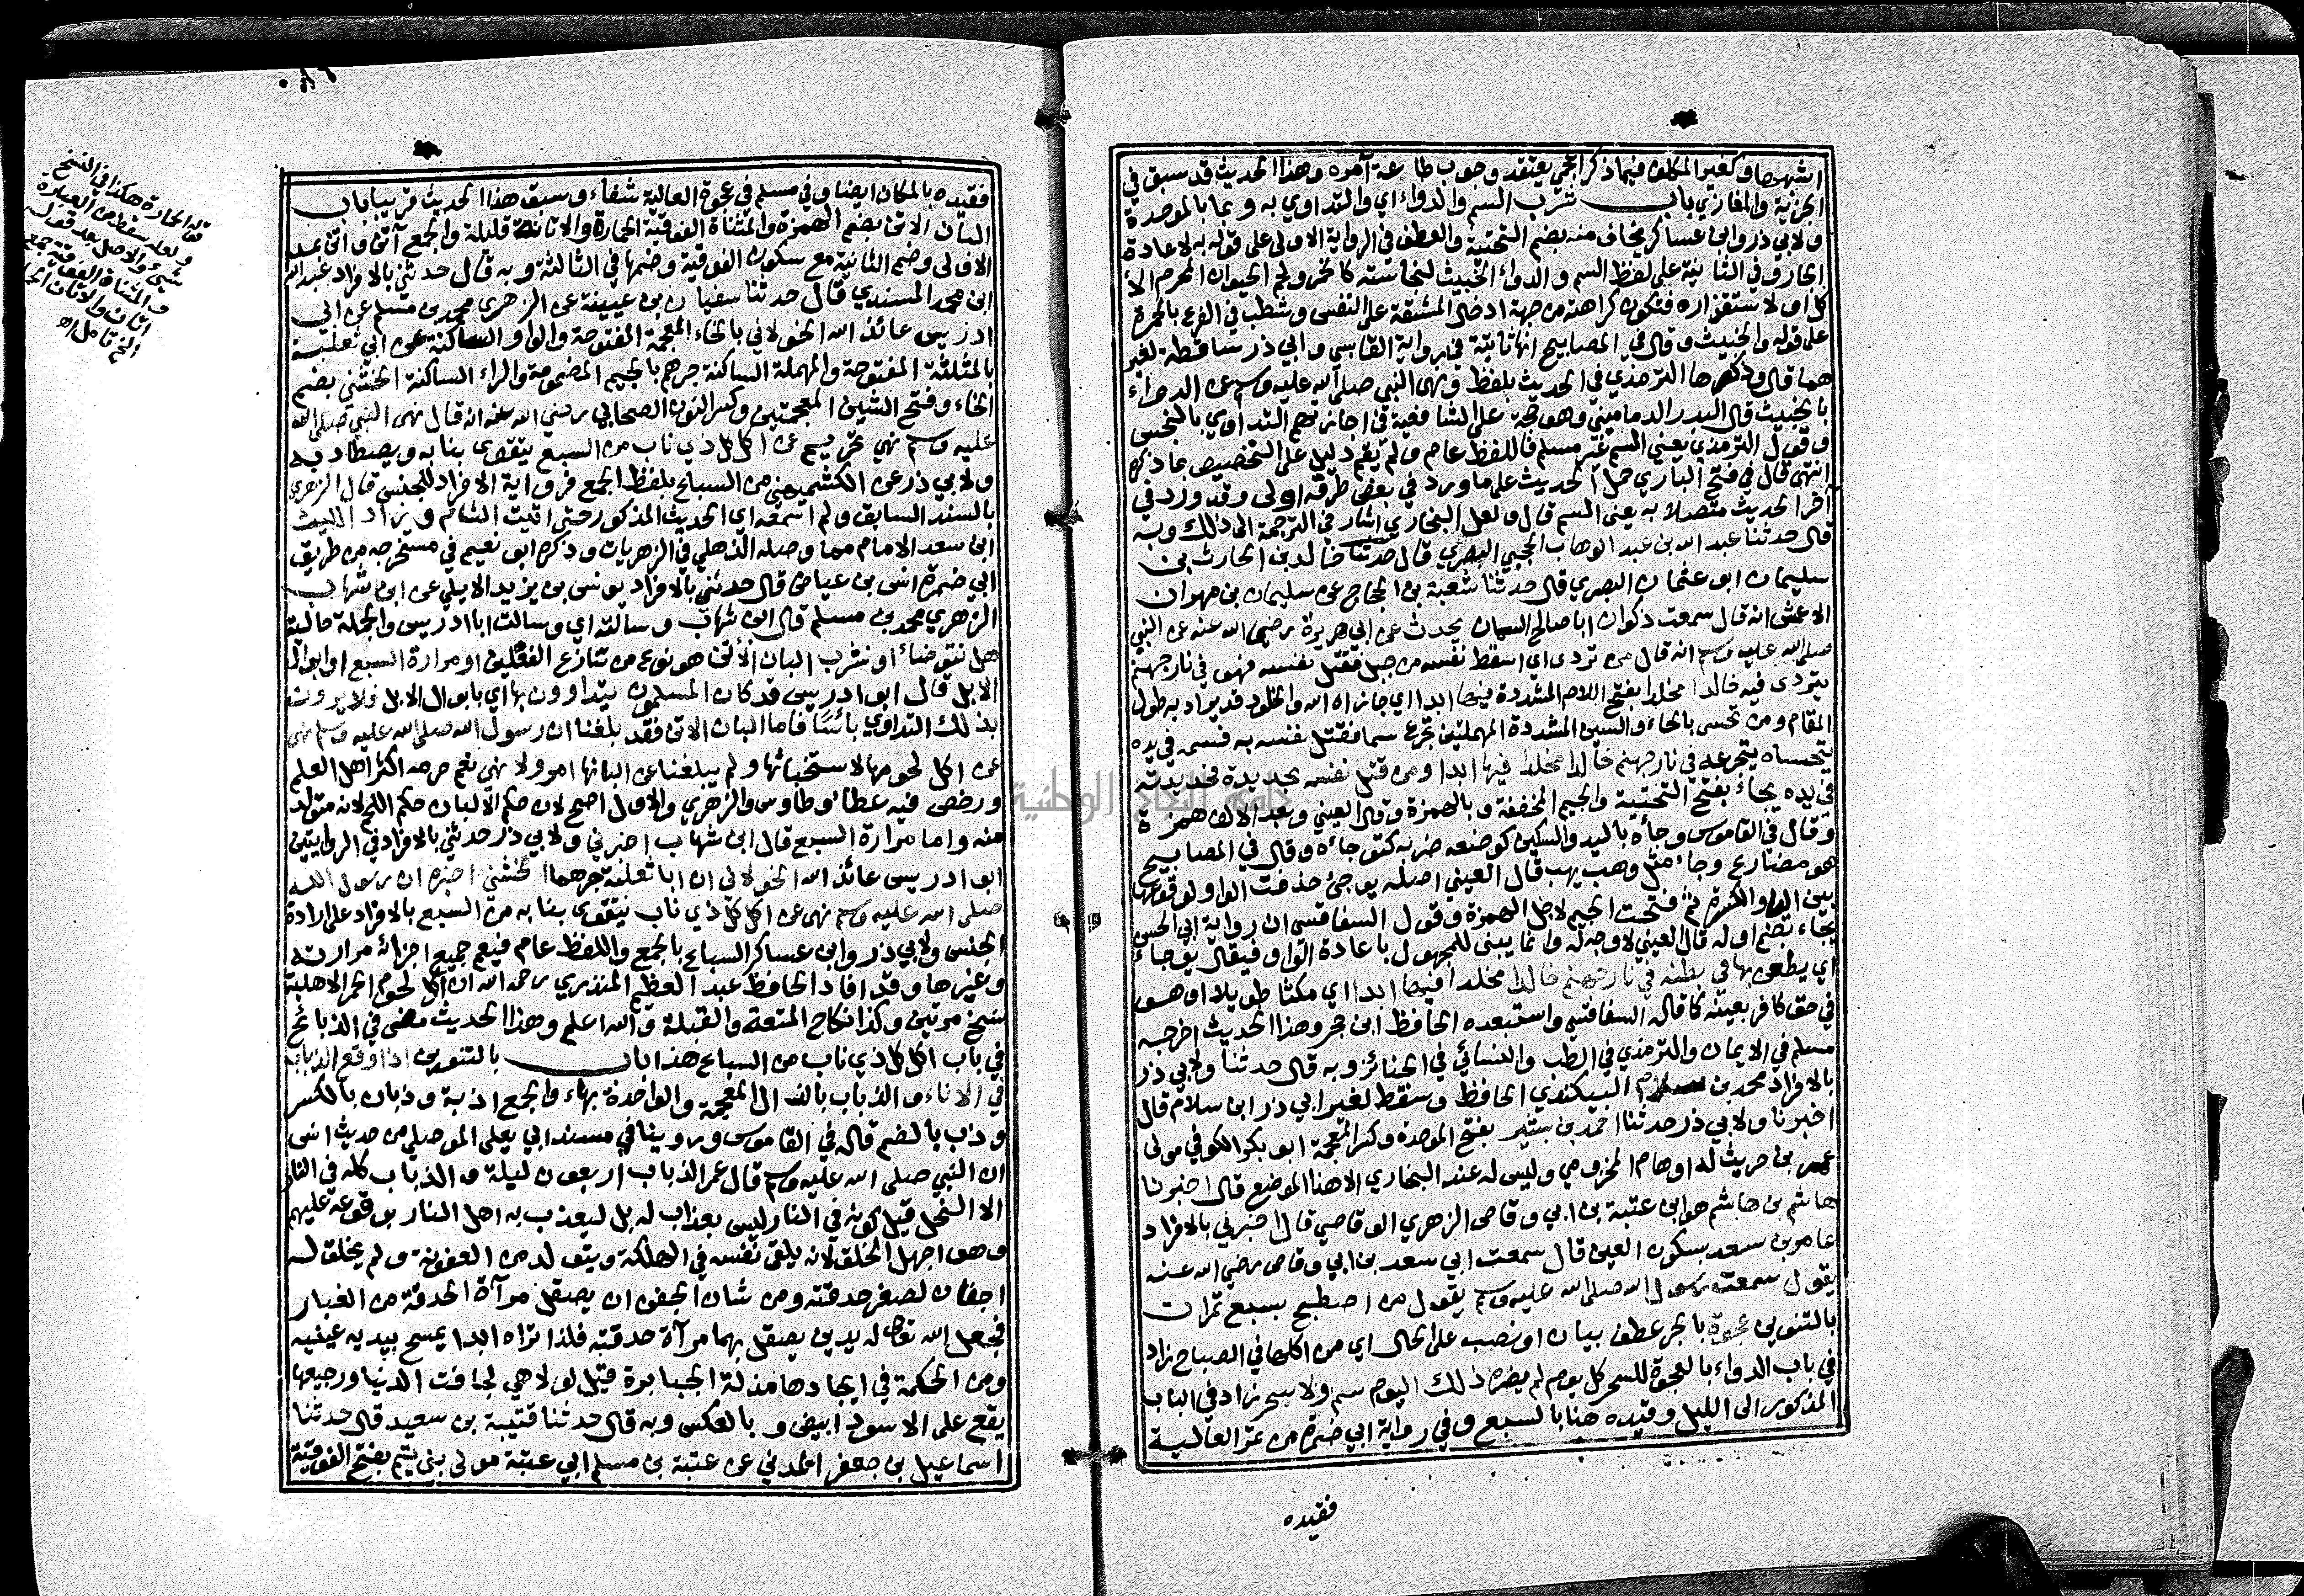 اشهب صار كغير المكلف فيما ذكر اعجمي يعتقد وجوب طاعة آمره وهذا الحديث قد سبق في
الجزية والمغازي باب شرب السم والدواء اي والتداوي به وبما بالموحدة
ولابي ذر وابن عساكر يخاف منه بضم التحتية والعطف في الرواية الاولى على قوله به لاعادة
الجار وفي الثانية على لفظ السم والدواء الخبيث لنجاسته كالخمر ولحم الحيوان المحرم الا
كل او لاستقذاره فتكون كراهته من جهة ادخال المشقة على النفس وشطب في الفرع بالحمرة
على قوله والخبيث وقال في المصابيح انها ثابتة في رواية القابسي وابي ذر ساقطة لغير
هما قال وذكرها الترمذي في الحديث بلفظ ونهى النبي صلى الله عليه وسلم عن الدواء
بالخبيث قال البدر الدماميني وهو حجة على الشافعية في اجازتهم التداوي بالنجس
وقول الترمذي يعني السم غير مسلم فاللفظ عام ولم يقم دليل على التخصيص بما ذكره
انتهى قال في فتح الباري حمل الحديث على ما ورد في بعض طرقه اولى وقد ورد في
آخر الحديث متصلا به يعني السم قال ولعل البخاري اشار في الترجمة الى ذلك وبه
قال حدثنا عبد الله بن عبد الوهاب الحجبي البصري قال حدثنا خالد بن الحارث بن
سليمان ابو عثمان البصري قال حدثنا شعبة بن الحجاج عن سليمان بن مهران
الاعمش انه قال سمعت ذكوان ابا صالح السمان يحدث عن ابي هريرة رضي الله عنه عن النبي
صلى الله عليه وسلم انه قال من تردى اي اسقط نفسه من جبل فقتل نفسه فهو في نار جهنم
يتردى فيه خالدا مخلدا بفتح اللام المشددة فيها ابدا اي جازاه الله والخلود قد يراد به طول
المقام ومن تحسى بالحاء والسين المشددة المهملتين تجرع سما فقتل نفسه به فسمه في يده
يتحساه يتجرعه في نار جهنم خالدا مخلدا فيها ابدا ومن قتل نفسه بحديدة فحديدته
في يده يجاء بفتح التحتية والجيم المخففة وبالهمزة وقال العيني وبعد الالف همزة
وقال في القاموس وجأه باليد والسكين كوضعه ضربه كتوجأه وقال في المصابيح
هو مضارع وجاء مثل وهب يهب قال العيني اصله يوجئ حذفت الواو لوقوعها
بين الياء والكسرة ثم فتحت الجيم لاجل الهمزة وقول السفاقسي ان رواية ابي الحسن
يجاء بضم اوله قال العيني لا وجه له وانما يبنى للمجهول باعادة الواو فيقال يوجاء
اي يطعن بها في بطنه في نار جهنم خالدا مخلدا فيها ابدا اي مكثا طويلا او هو
في حق كافر بعينه كما قاله السفاقسي واستبعده الحافظ ابن حجر وهذا الحديث اخرجه
مسلم في الايمان والترمذي في الطب والنسائي في الجنائز وبه قال حدثنا ولابي ذر
بالافراد محمد بن سلام البيكندي الحافظ وسقط لغير ابي ذر ابن سلام قال
اخبرنا ولابي ذر حدثنا احمد بن بشير بفتح الموحدة وكسر المعجمة ابو بكر الكوفي مولى
عمرو بن حريث له اوهام المخزومي وليس له عند البخاري الا هذا الموضع قال اخبرنا
هاشم بن هاشم هو ابن عتبة بن ابي وقاص الزهري الوقاصي قال اخبرني بالافراد
عامر بن سعد بسكون العين قال سمعت ابي سعد بن ابي وقاص رضي الله عنه
يقول سمعت رسول الله صلى الله عليه وسلم يقول من اصطبح بسبع تمرات
بالتنوين عجوة بالجر عطف بيان او نصب على الحال اي من اكلها في الصباح زاد
في باب الدواء بالعجوة للسحر كل يوم لم يضره ذلك اليوم سم ولا سحر زاد في الباب
المذكور الى الليل وقيده هنا بالسبع وفي رواية ابي ضمرة من تمر العالية
فقيده
فقيده بالمكان ايضا وفي مسلم في عجوة العالية شفاء وسبق هذا الحديث قريبا باب
البان الاتن بضم الهمزة والمثناة الفوقية الحمارة والاتانة قليلة والجمع آتن واتن بمد
الاولى وضم الثانية مع سكون الفوقية وضمها في الثالثة وبه قال حدثني بالافراد عبد الله
ابن محمد المسندي قال حدثنا سفيان بن عيينة عن الزهري محمد بن مسلم عن ابي
ادريس عائذ الله الخولاني بالخاء المعجمة المفتوحة والواو الساكنة عن ابي ثعلبة
بالمثلثة المفتوحة والمهملة الساكنة جرهم بالجيم المضمومة والراء الساكنة الخشني بضم
الخاء وفتح الشين المعجمتين وكسر النون الصحابي رضي الله عنه انه قال نهى النبي صلى الله
عليه وسلم نهي تحريم عن اكل كل ذي ناب من السبع يتقوى بنابه ويصطاد به
ولابي ذر عن الكشميهني من السباع بلفظ الجمع فرواية الافراد للجنس قال الزهري
بالسند السابق ولم اسمعه اي الحديث المذكور حتى اتيت الشام وزاد الليث
ابن سعد الامام مما وصله الذهلي في الزهريات وذكره ابو نعيم في مستخرجه من طريق
ابي ضمرة انس بن عياض قال حدثني بالافراد يونس بن يزيد الايلي عن ابن شهاب
الزهري محمد بن مسلم قال ابن شهاب وسالته اي وسالت ابا ادريس والجملة حالية
هل نتوضأ او نشرب البان الأتن هو نوع من تنازع الفعلين او مرارة السبع او ابوال
الابل قال ابو ادريس قد كان المسلمون يتداوون بها اي بابوال الابل فلا يرون
بذلك التداوي بأسا فاما البان الاتن فقد بلغنا ان رسول الله صلى الله عليه وسلم نهى
عن اكل لحومها لاستخباثها ولم يبلغنا عن البانها امر ولا نهي نعم حرمه اكثر اهل العلم
ورخص فيه عطاء وطاوس والزهري والاول اصح لان حكم الالبان حكم اللحم لانه متولد
منه واما مرارة السبع قال ابن شهاب اخبرني ولابي ذر حدثني بالافراد في الروايتين
ابو ادريس عائذ الله الخولاني ان ابا ثعلبة جرهما الخشني اخبره ان رسول الله
صلى الله عليه وسلم نهى عن اكل كل ذي ناب يتقوى بنابه من السبع بالافراد على ارادة
الجنس ولابي ذر وابن عساكر السباع بالجمع واللفظ عام فيعم جميع اجزائه مرارته
وغيرها وقد افاد الحافظ عبد العظيم المنذري رحمه الله ان اكل لحوم الحمر الاهلية
نسخ مرتين وكذا نكاح المتعة والقبلة والله اعلم وهذا الحديث مضى في الذبائح
في باب اكل كل ذي ناب من السباع هذا باب بالتنوين اذا وقع الذباب
في الاناء والذباب بالذال المعجمة والواحدة بهاء والجمع اذبة وذبان بالكسر
وذب بالضم قاله في القاموس وروينا في مسند ابي يعلى الموصلي من حديث انس
ان النبي صلى الله عليه وسلم قال عمر الذباب اربعون ليلة والذباب كله في النار
الا النحل قيل كونه في النار ليس بعذاب له بل ليعذب به اهل النار بوقوعه عليهم
وهو اجهل الخلق لانه يلقي نفسه في الهلكة ويتولد من العفونة ولم يخلق له
اجفان لصغر حدقته ومن شان الجفون ان يصقل مرآة الحدقة من الغبار
فجعل الله تعالى له يدين يصقل بهما مرآة حدقته فلذا تراه ابدا يمسح بيديه عينيه
ومن الحكمة في ايجادها مذلة الجبابرة قيل لولا هي لجافت الدنيا ورجيعها
يقع على الاسود ابيض وبالعكس وبه قال حدثنا قتيبة بن سعيد قال حدثنا
اسماعيل بن جعفر المدني عن عتبة بن مسلم ابي عتبة مولى بني تيم بفتح الفوقية
قوله الحمارة هكذا في النسخ
ولعله سقط من العبارة
شيء والاصل بعد قوله
والمثناة الفوقية جمع
اتان والاتان الحمارة
الخ تامل اه